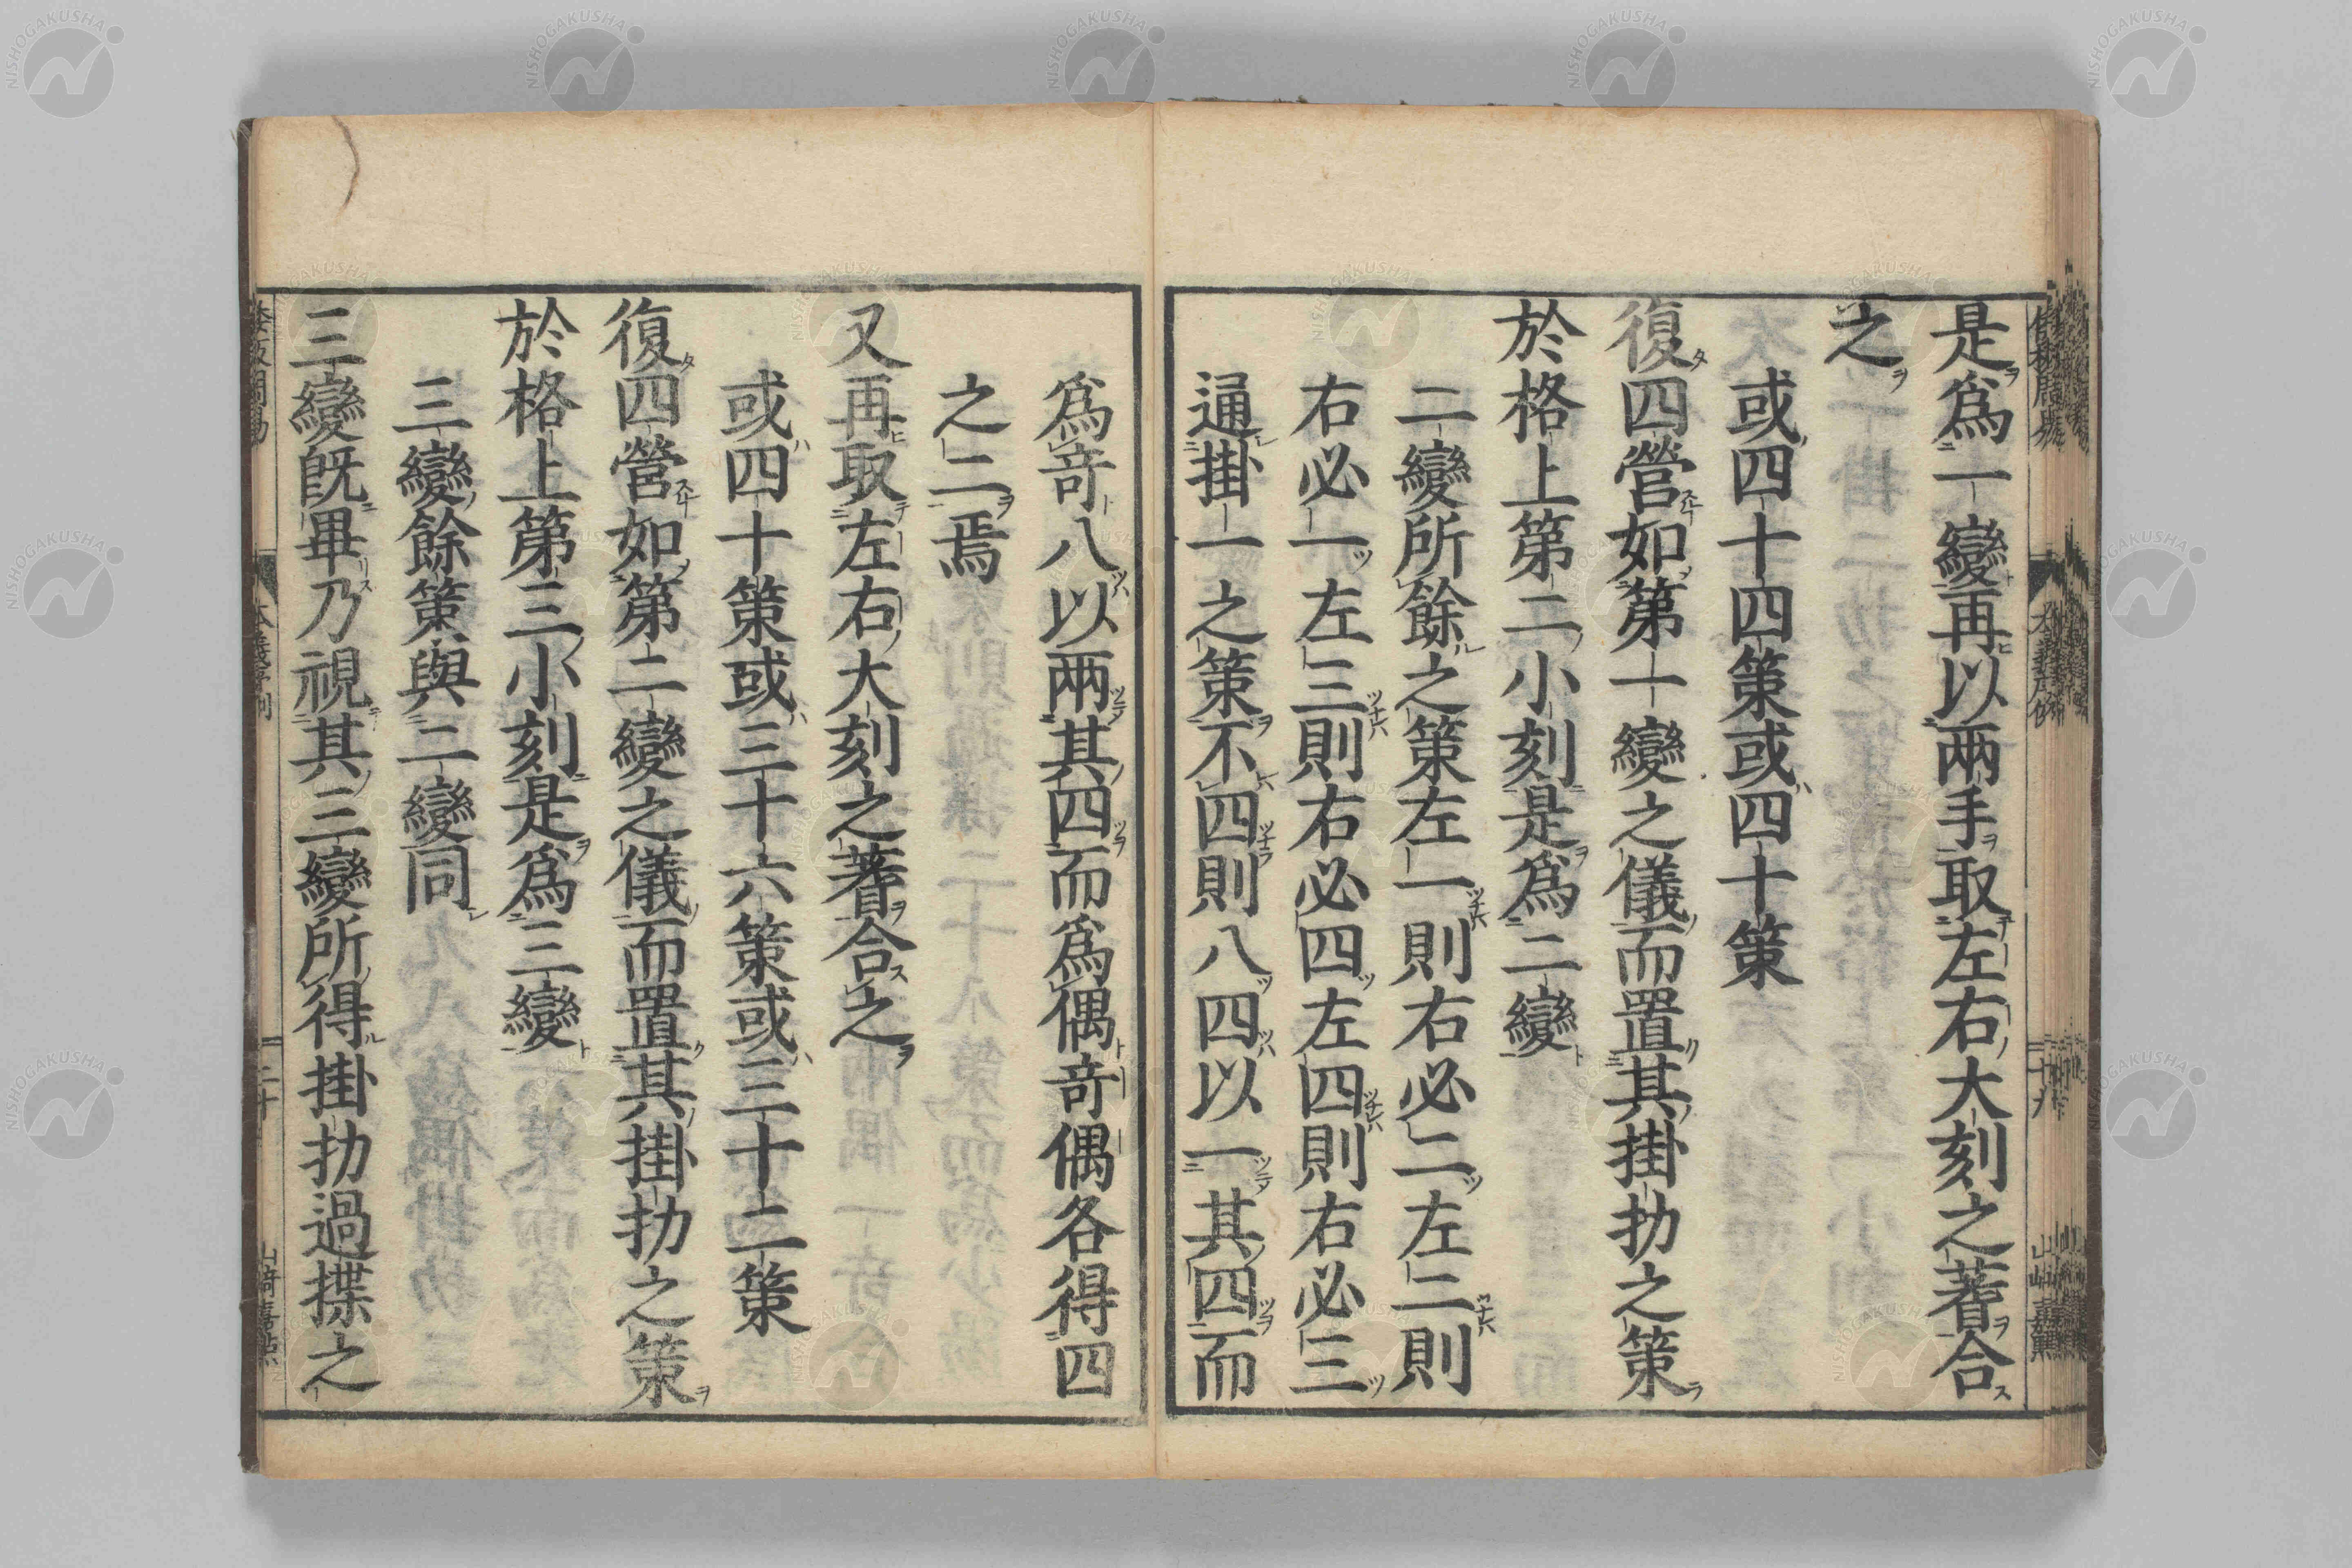 是爲一變再以兩手取左右大刻之蓍合
之
或四十四策或四十策
復四營如第一變之儀而置其掛扐之策
於格上第二小刻是爲二變
二變所餘之策左一則右必二左二則
右必一左三則右必四左四則右必三
通掛一之策不四則八四以一其四而
爲奇八以兩其四而爲偶奇偶各得四
之二焉
又再取左右大刻之蓍合之
或四十策或三十六策或三十二策
復四營如第二變之儀而置其掛扐之策
於格上第三小刻是爲三變
三變餘策與二變同
三變旣畢乃視其三變所得掛扐過揲之
二十
NISHOGAKUSHA